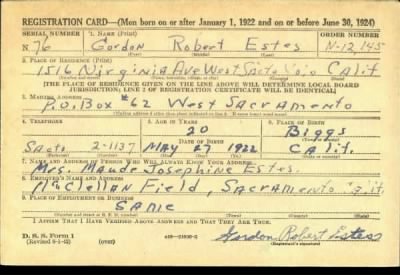 REGISTRATION CARD—(Men born on or after January 1, 1922 and on or before June 30, 1924)
SERIAL NUMBER 1. NAME (Print) ORDER NUMBER
N 76 Gordon Robert Estes N-12,145
(First) (Middle) (Last)
2. PLACE OF RESIDENCE (Print)
1516 Virginia Ave West Sacto Yolo Calif
[THE PLACE OF RESIDENCE GIVEN ON THE LINE ABOVE WILL DETERMINE LOCAL BOARD
JURISDICTION; LINE 2 OF REGISTRATION CERTIFICATE WILL BE IDENTICAL]
3. MAILING ADDRESS
P.O. Box #62 West Sacramento
[Mailing address if other than place indicated on line 2. If same insert word same]
4. TELEPHONE 5. AGE IN YEARS 6. PLACE OF BIRTH
20 Biggs
DATE OF BIRTH
Sacto. 2-1137 MAY 27 1922 Calif.
(Exchange) (Number) (Mo.) (Day) (Yr.) (State or country)
7. NAME AND ADDRESS OF PERSON WHO WILL ALWAYS KNOW YOUR ADDRESS
Mrs. Maude Josephine Estes
8. EMPLOYER'S NAME AND ADDRESS
McClellan Field, Sacramento
9. PLACE OF EMPLOYMENT OR BUSINESS
SAME
(Number and street or R. F. D. number) (Town) (County) (State)
I AFFIRM THAT I HAVE VERIFIED ABOVE ANSWERS AND THAT THEY ARE TRUE.
D. S. S. Form 1
(Revised 6-1-42) (over) Gordon Robert Estes
(Registrant's signature)